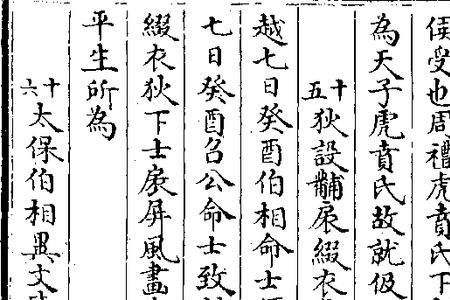 侯受也周禮虎賁氏下
為天子虎賁氏故就伋
十五狄設黼扆綴衣
越七日癸酉伯相命士
七日癸酉召公命士致
綴衣狄下士扆屏風畫
平生所為
十六太保伯相異文